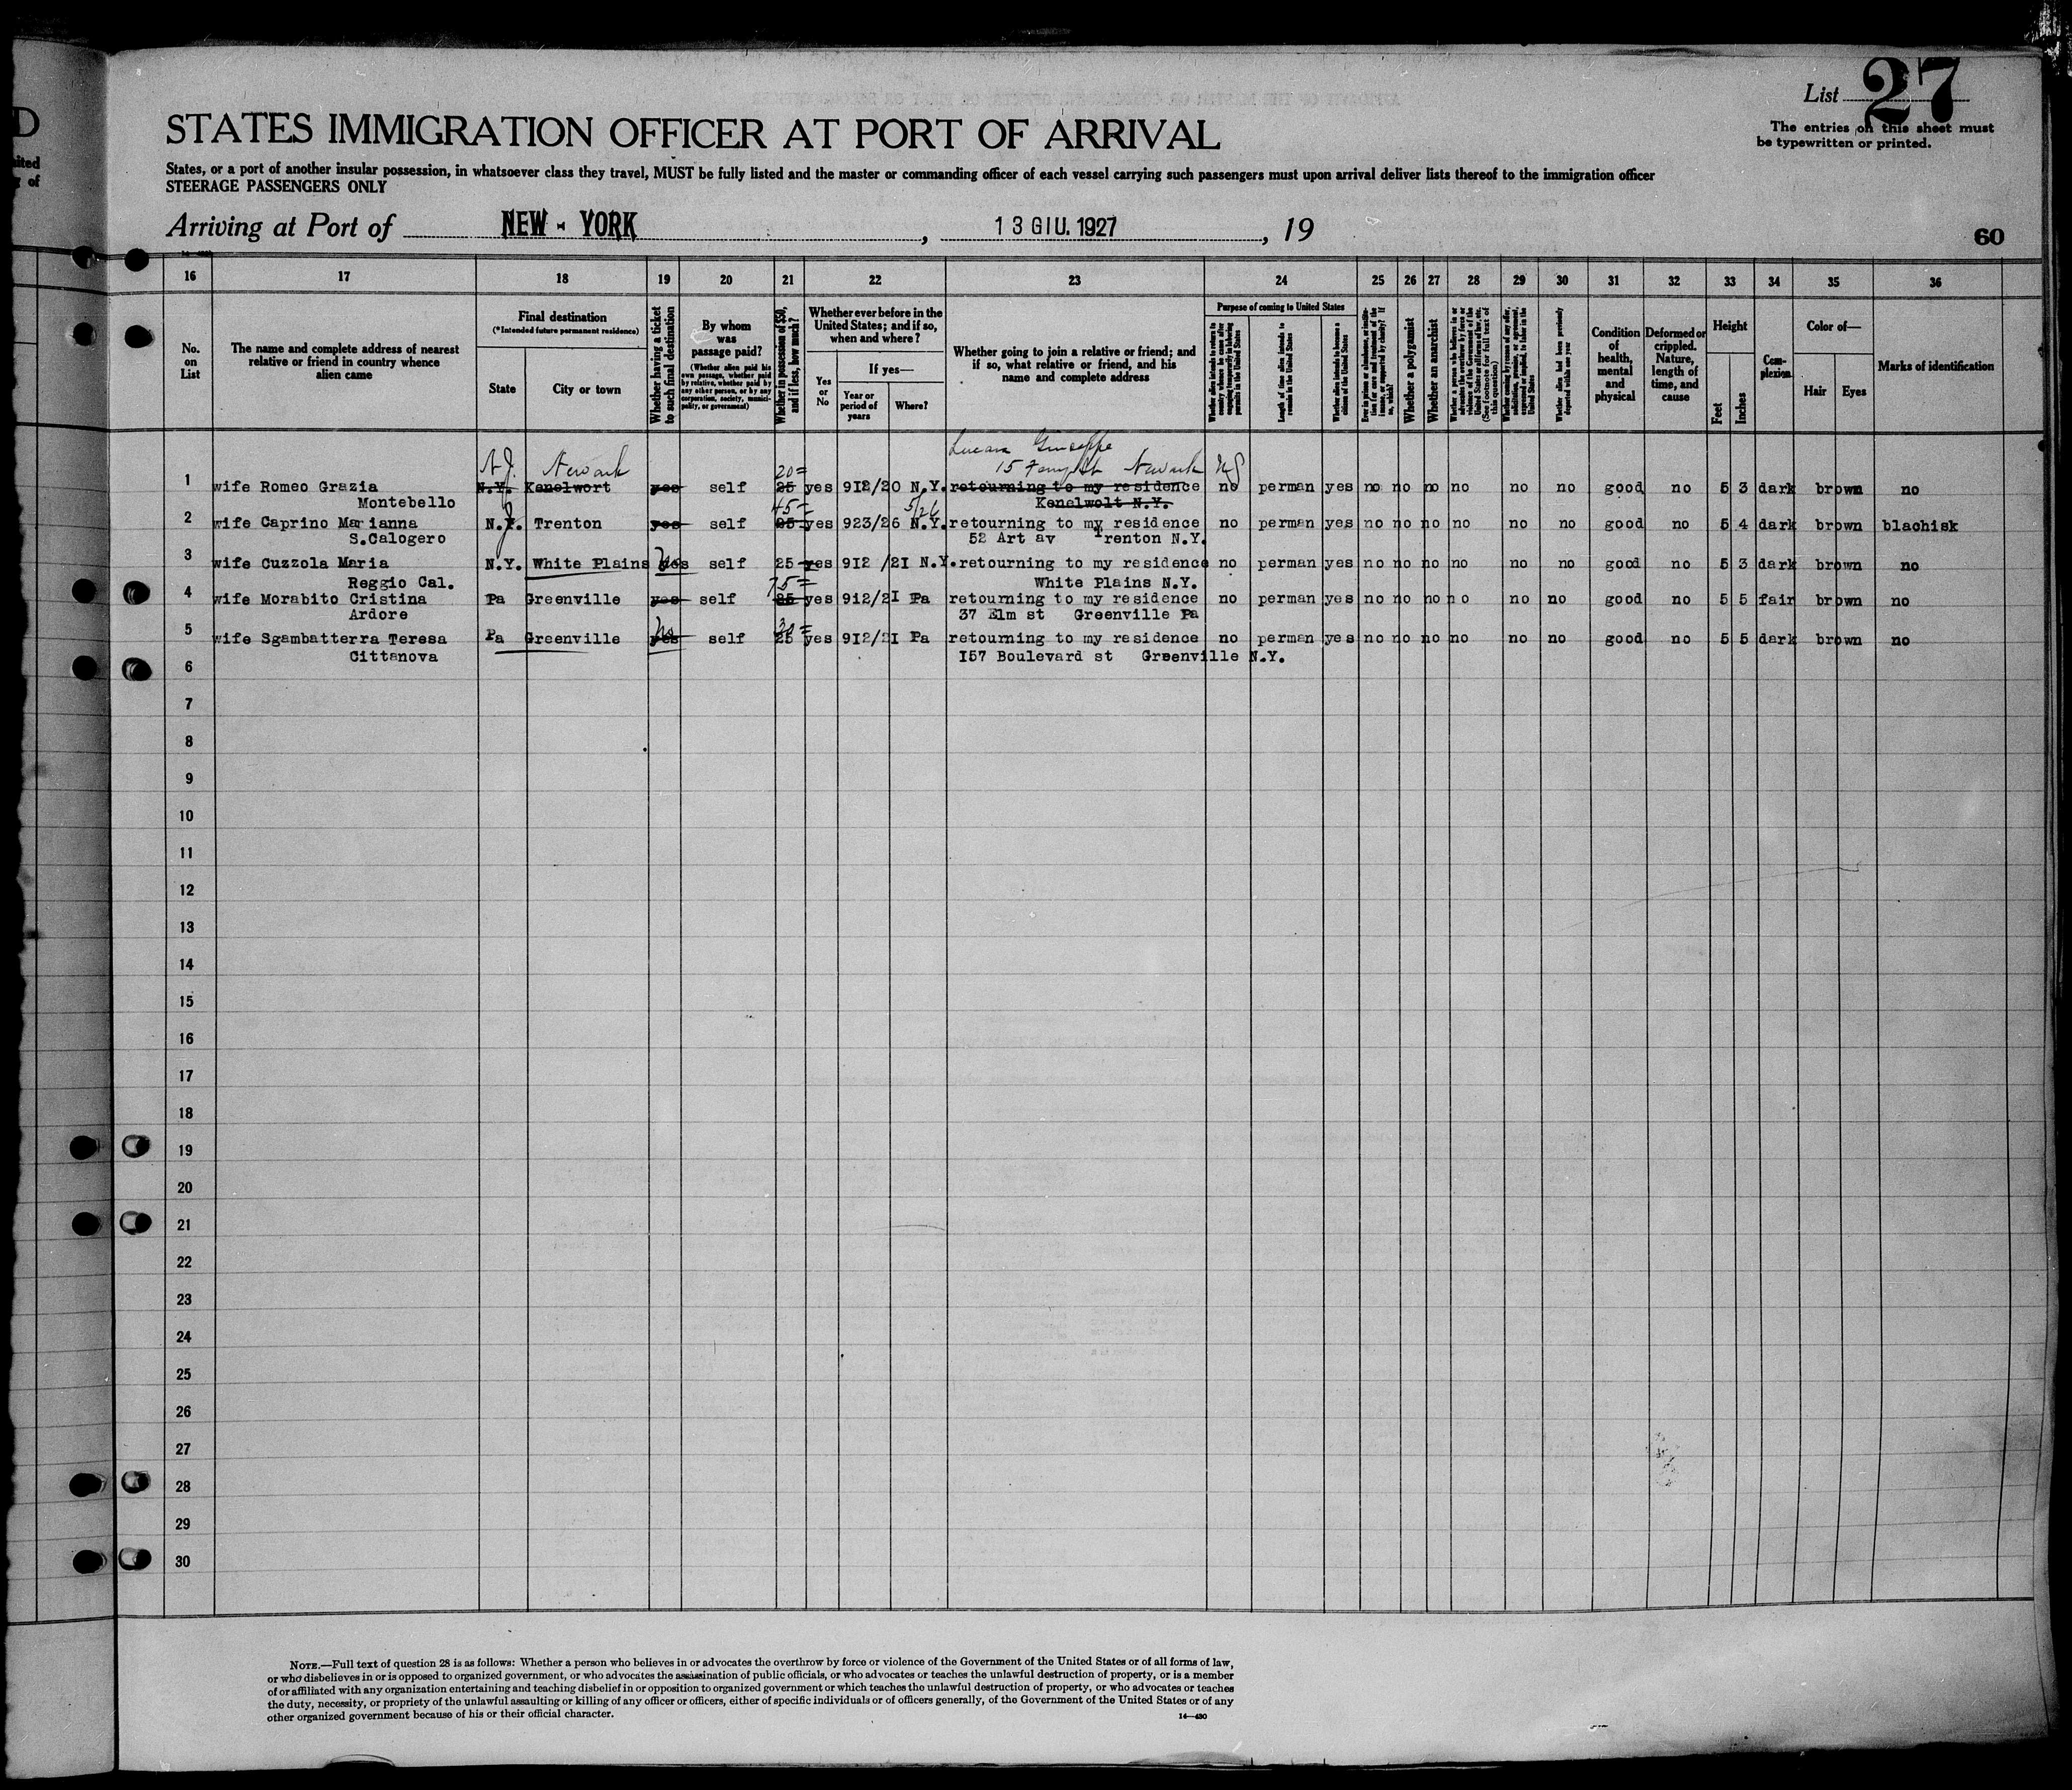 D
nited
g of
List 27
The entries on this sheet must
be typewritten or printed.
STATES IMMIGRATION OFFICER AT PORT OF ARRIVAL
States, or a port of another insular possession, in whatsoever class they travel, MUST be fully listed and the master or commanding officer of each vessel carrying such passengers must upon arrival deliver lists thereof to the immigration officer
STEERAGE PASSENGERS ONLY
Arriving at Port of NEW - YORK, 13 GIU. 1927, 19
60
16 17 18 19 20 21 22 23 24 25 26 27 28 29 30 31 32 33 34 35 36
No. on List
The name and complete address of nearest relative or friend in country whence alien came
Final destination
(*Intended future permanent residence)
State
City or town
Whether having a ticket to such final destination
By whom was passage paid?
(Whether alien paid his own passage, whether paid by relative, whether paid by any other person, or by any corporation, society, municipality, or government)
Whether in possession of $50, and if less, how much?
Whether ever before in the United States; and if so, when and where?
Yes or No
If yes—
Year or period of years
Where?
Whether going to join a relative or friend; and if so, what relative or friend, and his name and complete address
Purpose of coming to United States
Whether alien intends to return to country whence he came after engaging temporarily in laboring pursuits in the United States
Length of time alien intends to remain in the United States
Whether alien intends to become a citizen of the United States
Whether a polygamist
Whether an anarchist
Whether alien had been previously deported within one year
Condition of health, mental and physical
Deformed or crippled. Nature, length of time, and cause
Height
Feet
Inches
Complexion
Color of—
Hair
Eyes
Marks of identification
Giuseppe
N.J. Newark 20= 15 Newark NJ
1 wife Romeo Grazia N.Y. Kenelwort yes self 25 yes 912/20 N.Y. retourning to my residence no perman yes no no no no no no good no 5 3 dark brown no
Montebello Kenelwolt N.Y.
45= 5/26
2 wife Caprino Marianna N.J. Trenton yes self 25 yes 923/26 N.Y. retourning to my residence no perman yes no no no no no no good no 5 4 dark brown blachisk
S.Calogero 52 Art av Trenton N.Y.
3 wife Cuzzola Maria N.Y. White Plains yes self 25 yes 912 /21 N.Y. retourning to my residence no perman yes no no no no no no good no 5 3 dark brown no
Reggio Cal. 75= White Plains N.Y.
4 wife Morabito Cristina Pa Greenville yes self 25 yes 912/21 Pa retourning to my residence no perman yes no no no no no no good no 5 5 fair brown no
Ardore 37 Elm st Greenville Pa
no 30=
5 wife Sgambatterra Teresa Pa Greenville yes self 25 yes 912/21 Pa retourning to my residence no perman yes no no no no no no good no 5 5 dark brown no
Cittanova 157 Boulevard st Greenville N.Y.
6
7
8
9
10
11
12
13
14
15
16
17
18
19
20
21
22
23
24
25
26
27
28
29
30
NOTE.—Full text of question 28 is as follows: Whether a person who believes in or advocates the overthrow by force or violence of the Government of the United States or of all forms of law,
or who disbelieves in or is opposed to organized government, or who advocates the assassination of public officials, or who advocates or teaches the unlawful destruction of property, or is a member
of or affiliated with any organization entertaining and teaching disbelief in or opposition to organized government or which teaches the unlawful destruction of property, or who advocates or teaches
the duty, necessity, or propriety of the unlawful assaulting or killing of any officer or officers, either of specific individuals or of officers generally, of the Government of the United States or of any
other organized government because of his or their official character.
14—430